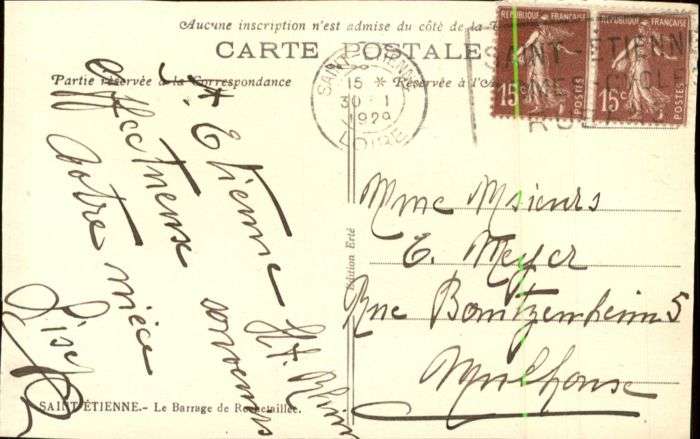 Aucune inscription n'est admise du côté de la
CARTE POSTALE
Partie réservée à la Correspondance
Réservée à l'A
RÉPUBLIQUE FRANÇAISE
15c
POSTES
RÉPUBLIQUE FRANÇAISE
15c
POSTES
SAINT-ÉTIENNE
15 *
30-1
1929
LOIRE
SAINT-ÉTIENNE
St Etienne
affectueux souvenirs
Votre nièce
Mme Msieurs
E. Meyer
Rue Bantzenheim 5
Mulhouse
Ht. Rhin
Edition Erté
SAINT-ÉTIENNE.- Le Barrage de Rochetaillée.